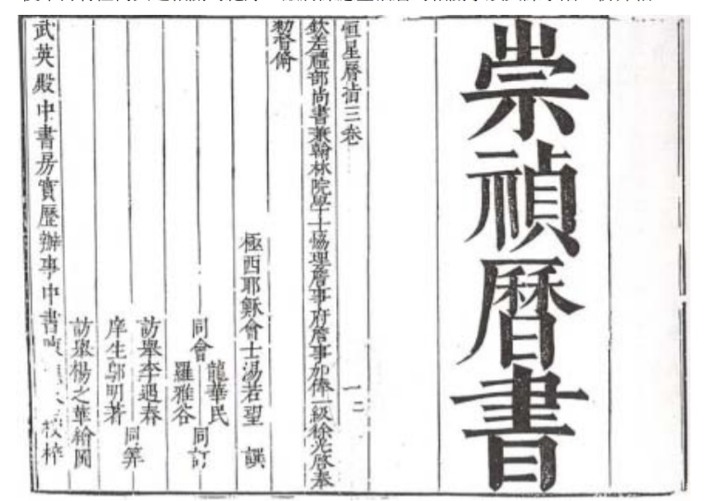 崇禎曆書
恒星曆指三卷
欽差禮部尚書兼翰林院學士協理詹事府詹事加俸一級徐光啓奉
勅督脩
極西耶穌會士湯若望 譔
同會 龍華民
羅雅谷 同訂
訪舉李遇春
庠生鄔明著 同筭
訪舉楊之華繪圖
武英殿中書房實歷辦事中書 校梓